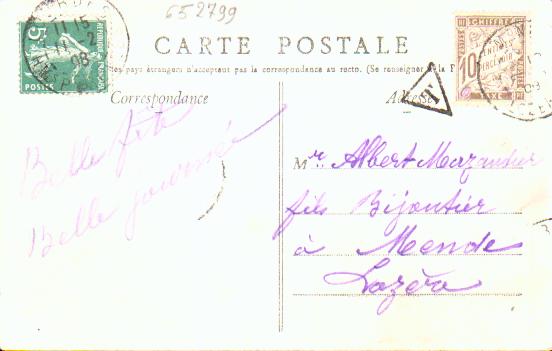 652799
11 15
11 - 2
08
5c
REPUBLIQUE FRANÇAISE
POSTES
CHIFFRE
10
CENTIMES
A PERCEVOIR
TAXE
CARTE POSTALE
les pays étrangers n'acceptent pas la correspondance au recto. (Se renseigner à la P
Correspondance
Adresse
T
Belle fête
Belle journée
Mr Albert Mazautier
fils Bijoutier
à Mende
Lozère